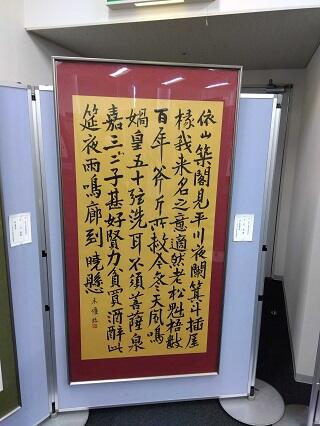 依山築閣見平川夜闌箕斗插屋
椽我来名之意適然老松魁梧數
百年斧斤所赦今参天風鳴
媧皇五十弦洗耳不須菩薩泉
嘉二三子甚好賢力貧買酒醉此
筵夜雨鳴廊到曉懸